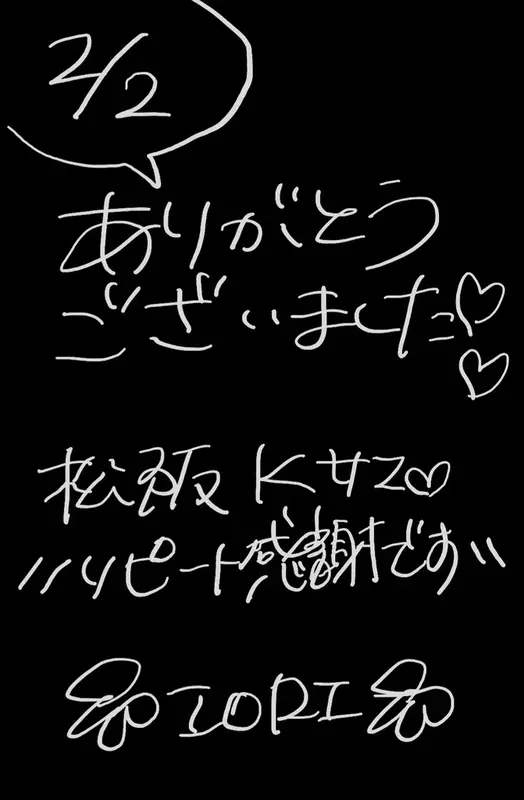 2/2
ありがとう
ございました♡
♡
松阪 Kサン♡
〃リピート感謝です〃
IORI